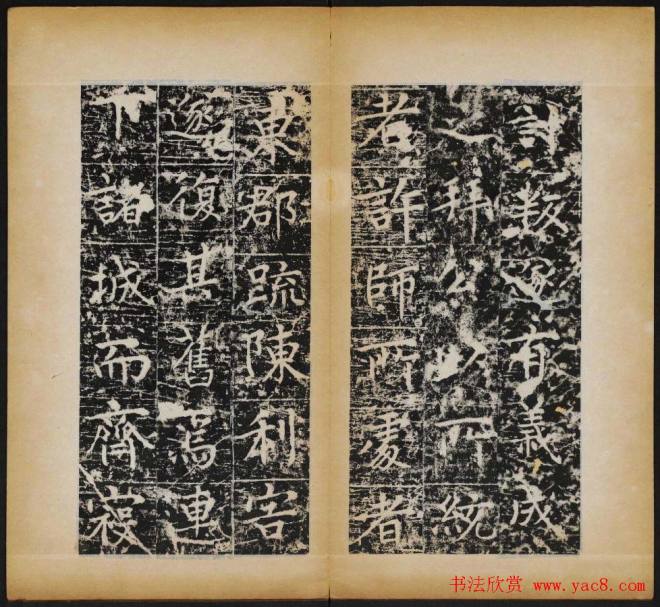 計數逐有義成
之拜公以所統
者許師所處者
東郡疏陳利害
遂復其舊焉連
下諸城而齊寇
书法欣赏 www.yac8.com